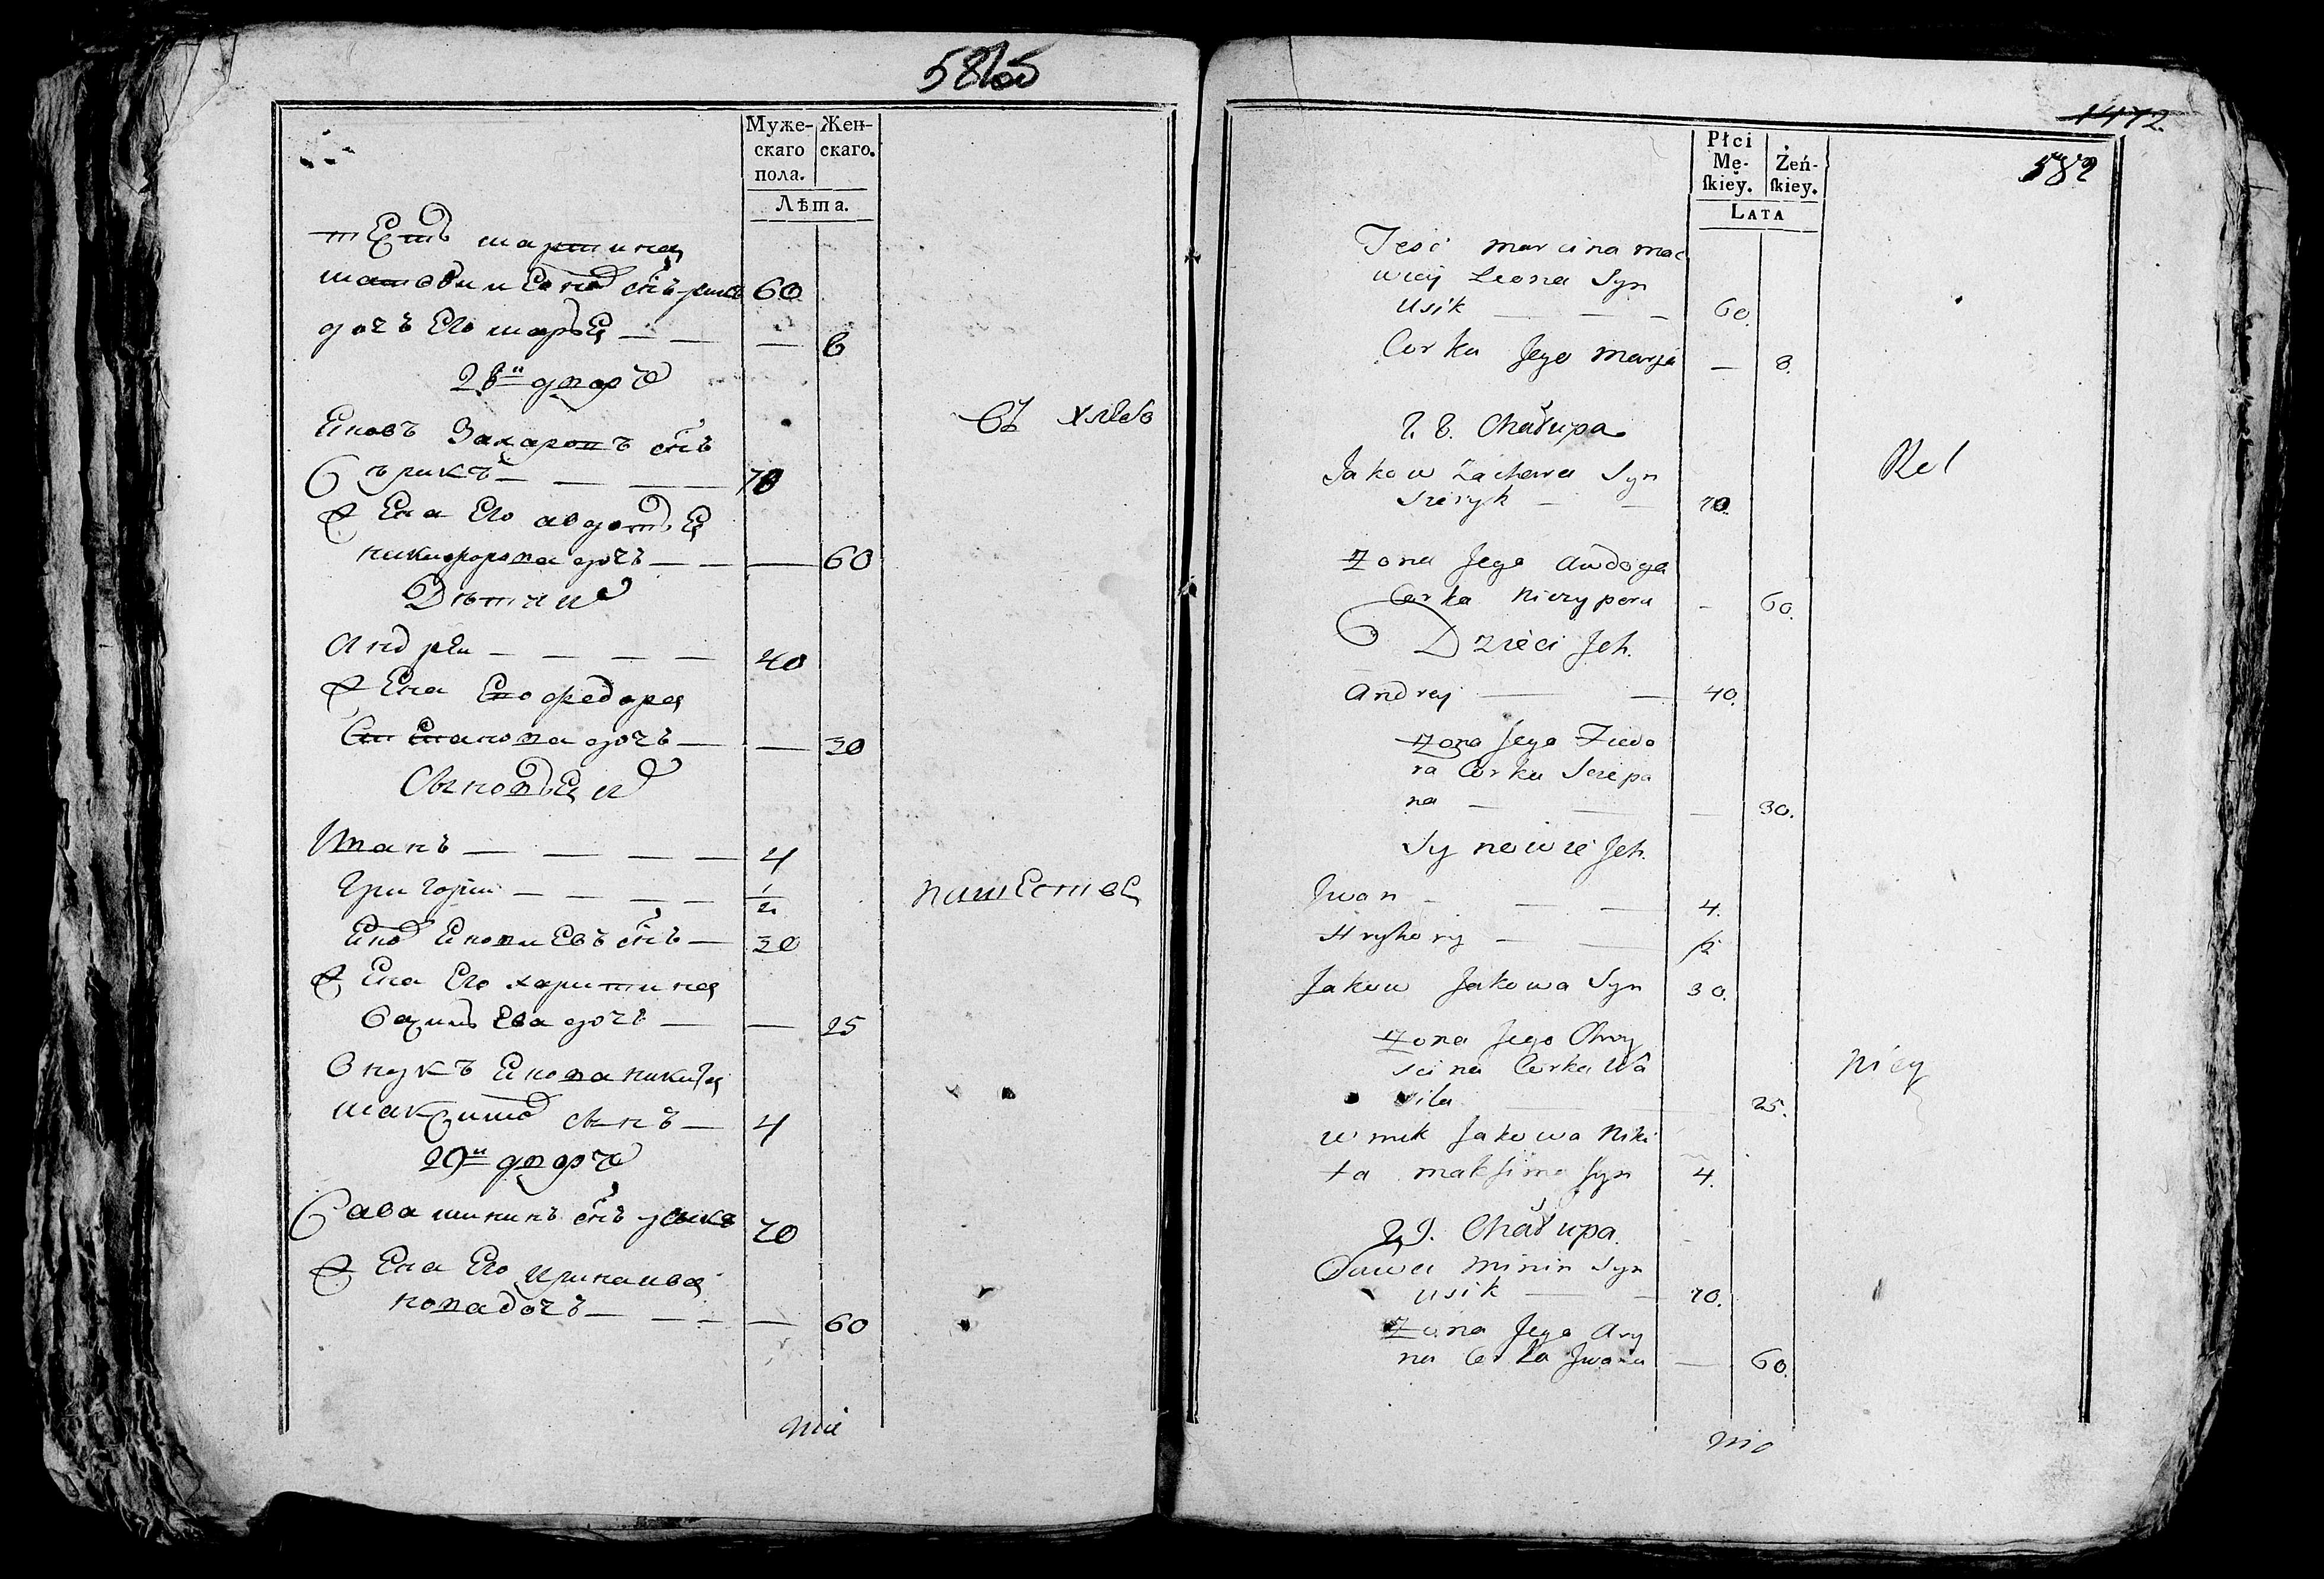 Муже-
скаго
пола.
Жен-
скаго.
Лѣта.
тесть мартина
матвѣи леоновъ снъ усикъ 60
дочъ его маръя — — — 8
28й дворъ
въ хлѣб
яковъ Захаровъ снъ
70
жена его авдотья
никифорова дочъ — — — 60
Дѣти их
андрѣи — — — — 40
жена его федора
степанова дочъ — — 30
сыновья их
Иванъ — — — — 4
григорїи — — — — 1/2
яковъ яковлевъ снъ — 30
жена его харитина
василева дочъ — — 25
внукъ якова никита
максимовъ сынъ — 4
29й дворъ
Сава мининъ снъ усикъ 70
жена его ирина ива
нова дочъ — — — — 60
Płci
Mę-
ſkiey.
Żeń-
ſkiey.
LATA
1472
582
Teść marcina mat
wiey Leona Syn
Usik — — — 60.
Corka Jego marja — 8.
2.8. Chałupa
Jakow Zachara Syn
— — 70.
Żona Jego Awdoja
Corka Niczypora — 60.
Dzieci Jch.
Andrey — — 40.
Żona Jego Fiedo
ra Corka Sciepa
na — — — 30.
Synowie Jch.
Jwan — — — 4.
Hryhory — — 1/2
Jakow Jakowa Syn 30.
Żona Jego Chry
scina Corka Wa
sila — — 25.
wnuk Jakowa Niki
ta maksima Syn 4.
29. Chałupa
Sawa Minin Syn
usik — — 70.
Żona Jego Ary
na Corka Jwana — 60.